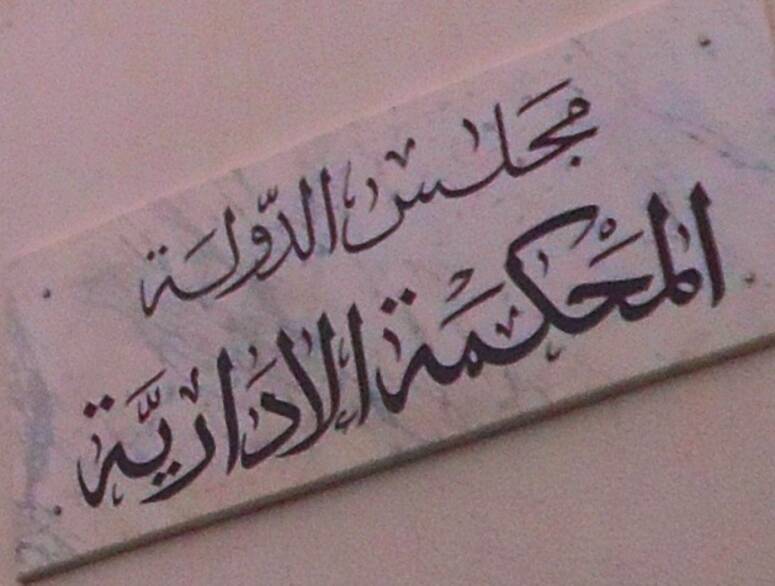 مجلس الدّولة
المحكمة الاداريّة